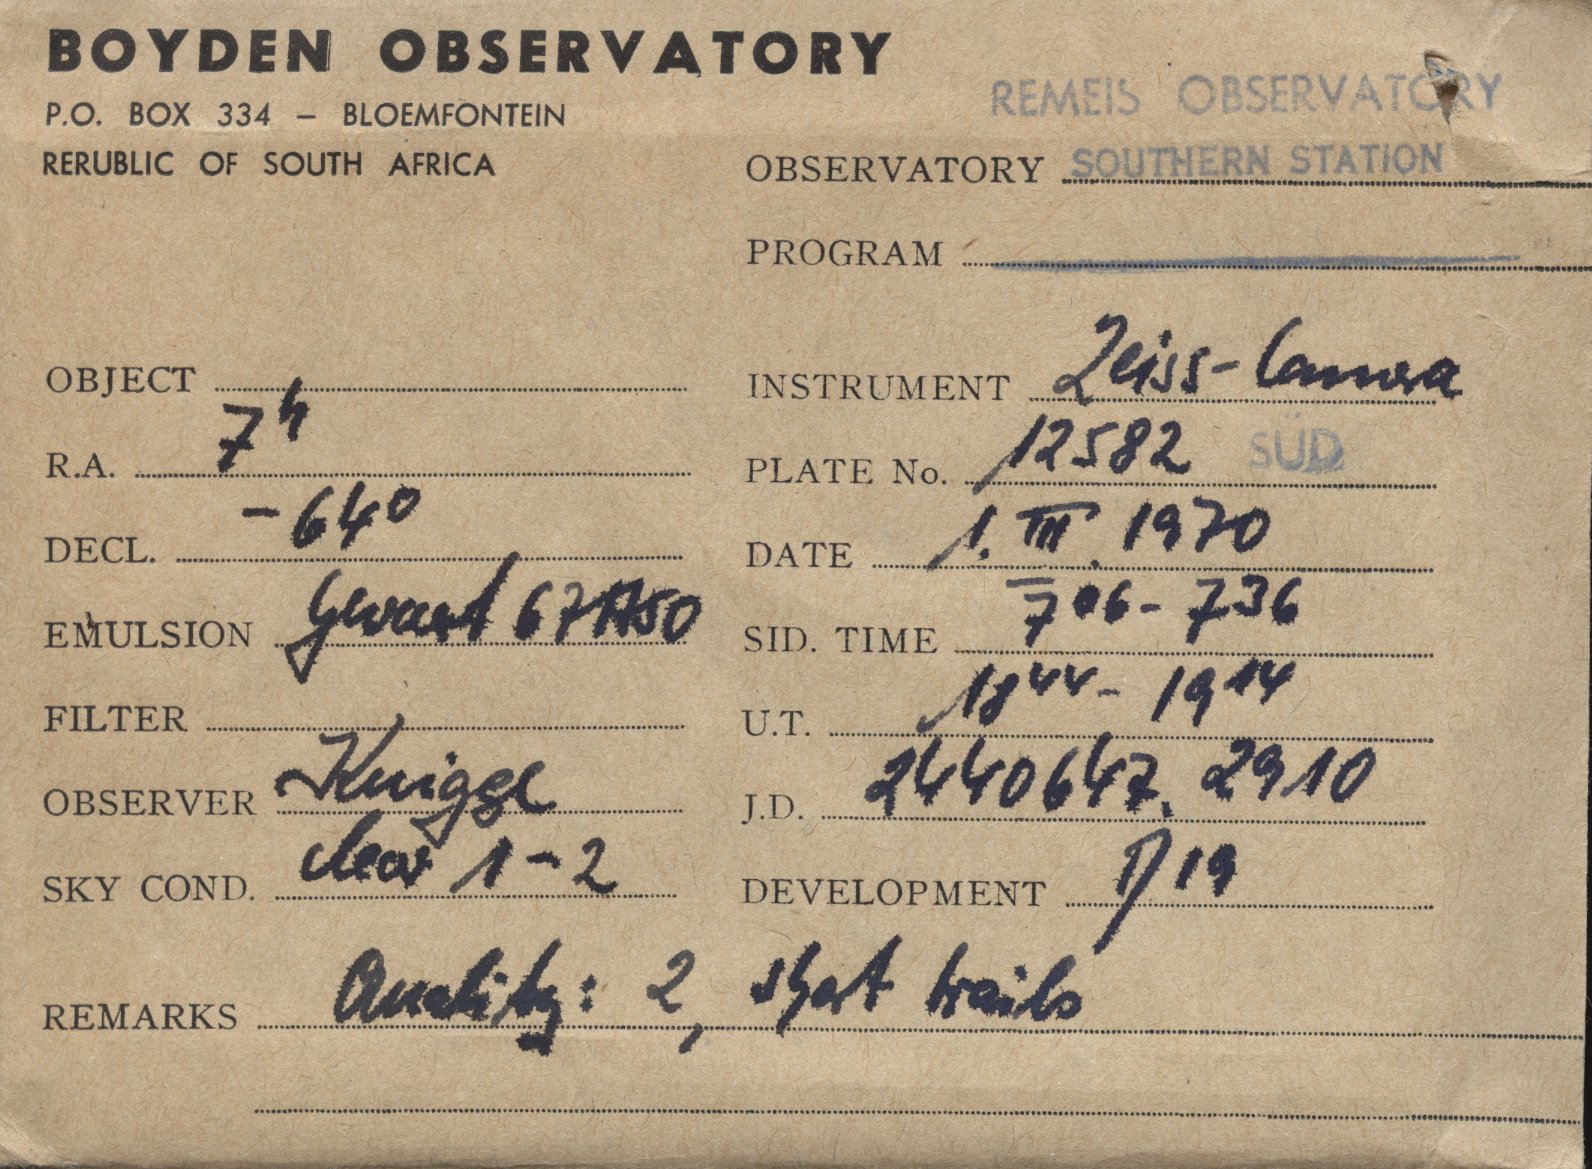 BOYDEN OBSERVATORY
P.O. BOX 334 – BLOEMFONTEIN
RERUBLIC OF SOUTH AFRICA
REMEIS OBSERVATORY
OBSERVATORY SOUTHERN STATION
PROGRAM
OBJECT
INSTRUMENT Zeiss-Camera
R.A. 7h
PLATE No. 12582 SÜD
DECL. -64°
DATE 1. III. 1970
EMULSION Gevaert 67A50
SID. TIME 7 06 - 7 36
FILTER
U.T. 18 44 - 19 14
OBSERVER Knigge
J.D. 2440647.2910
SKY COND. clear 1-2
DEVELOPMENT D19
REMARKS Quality: 2, short trails